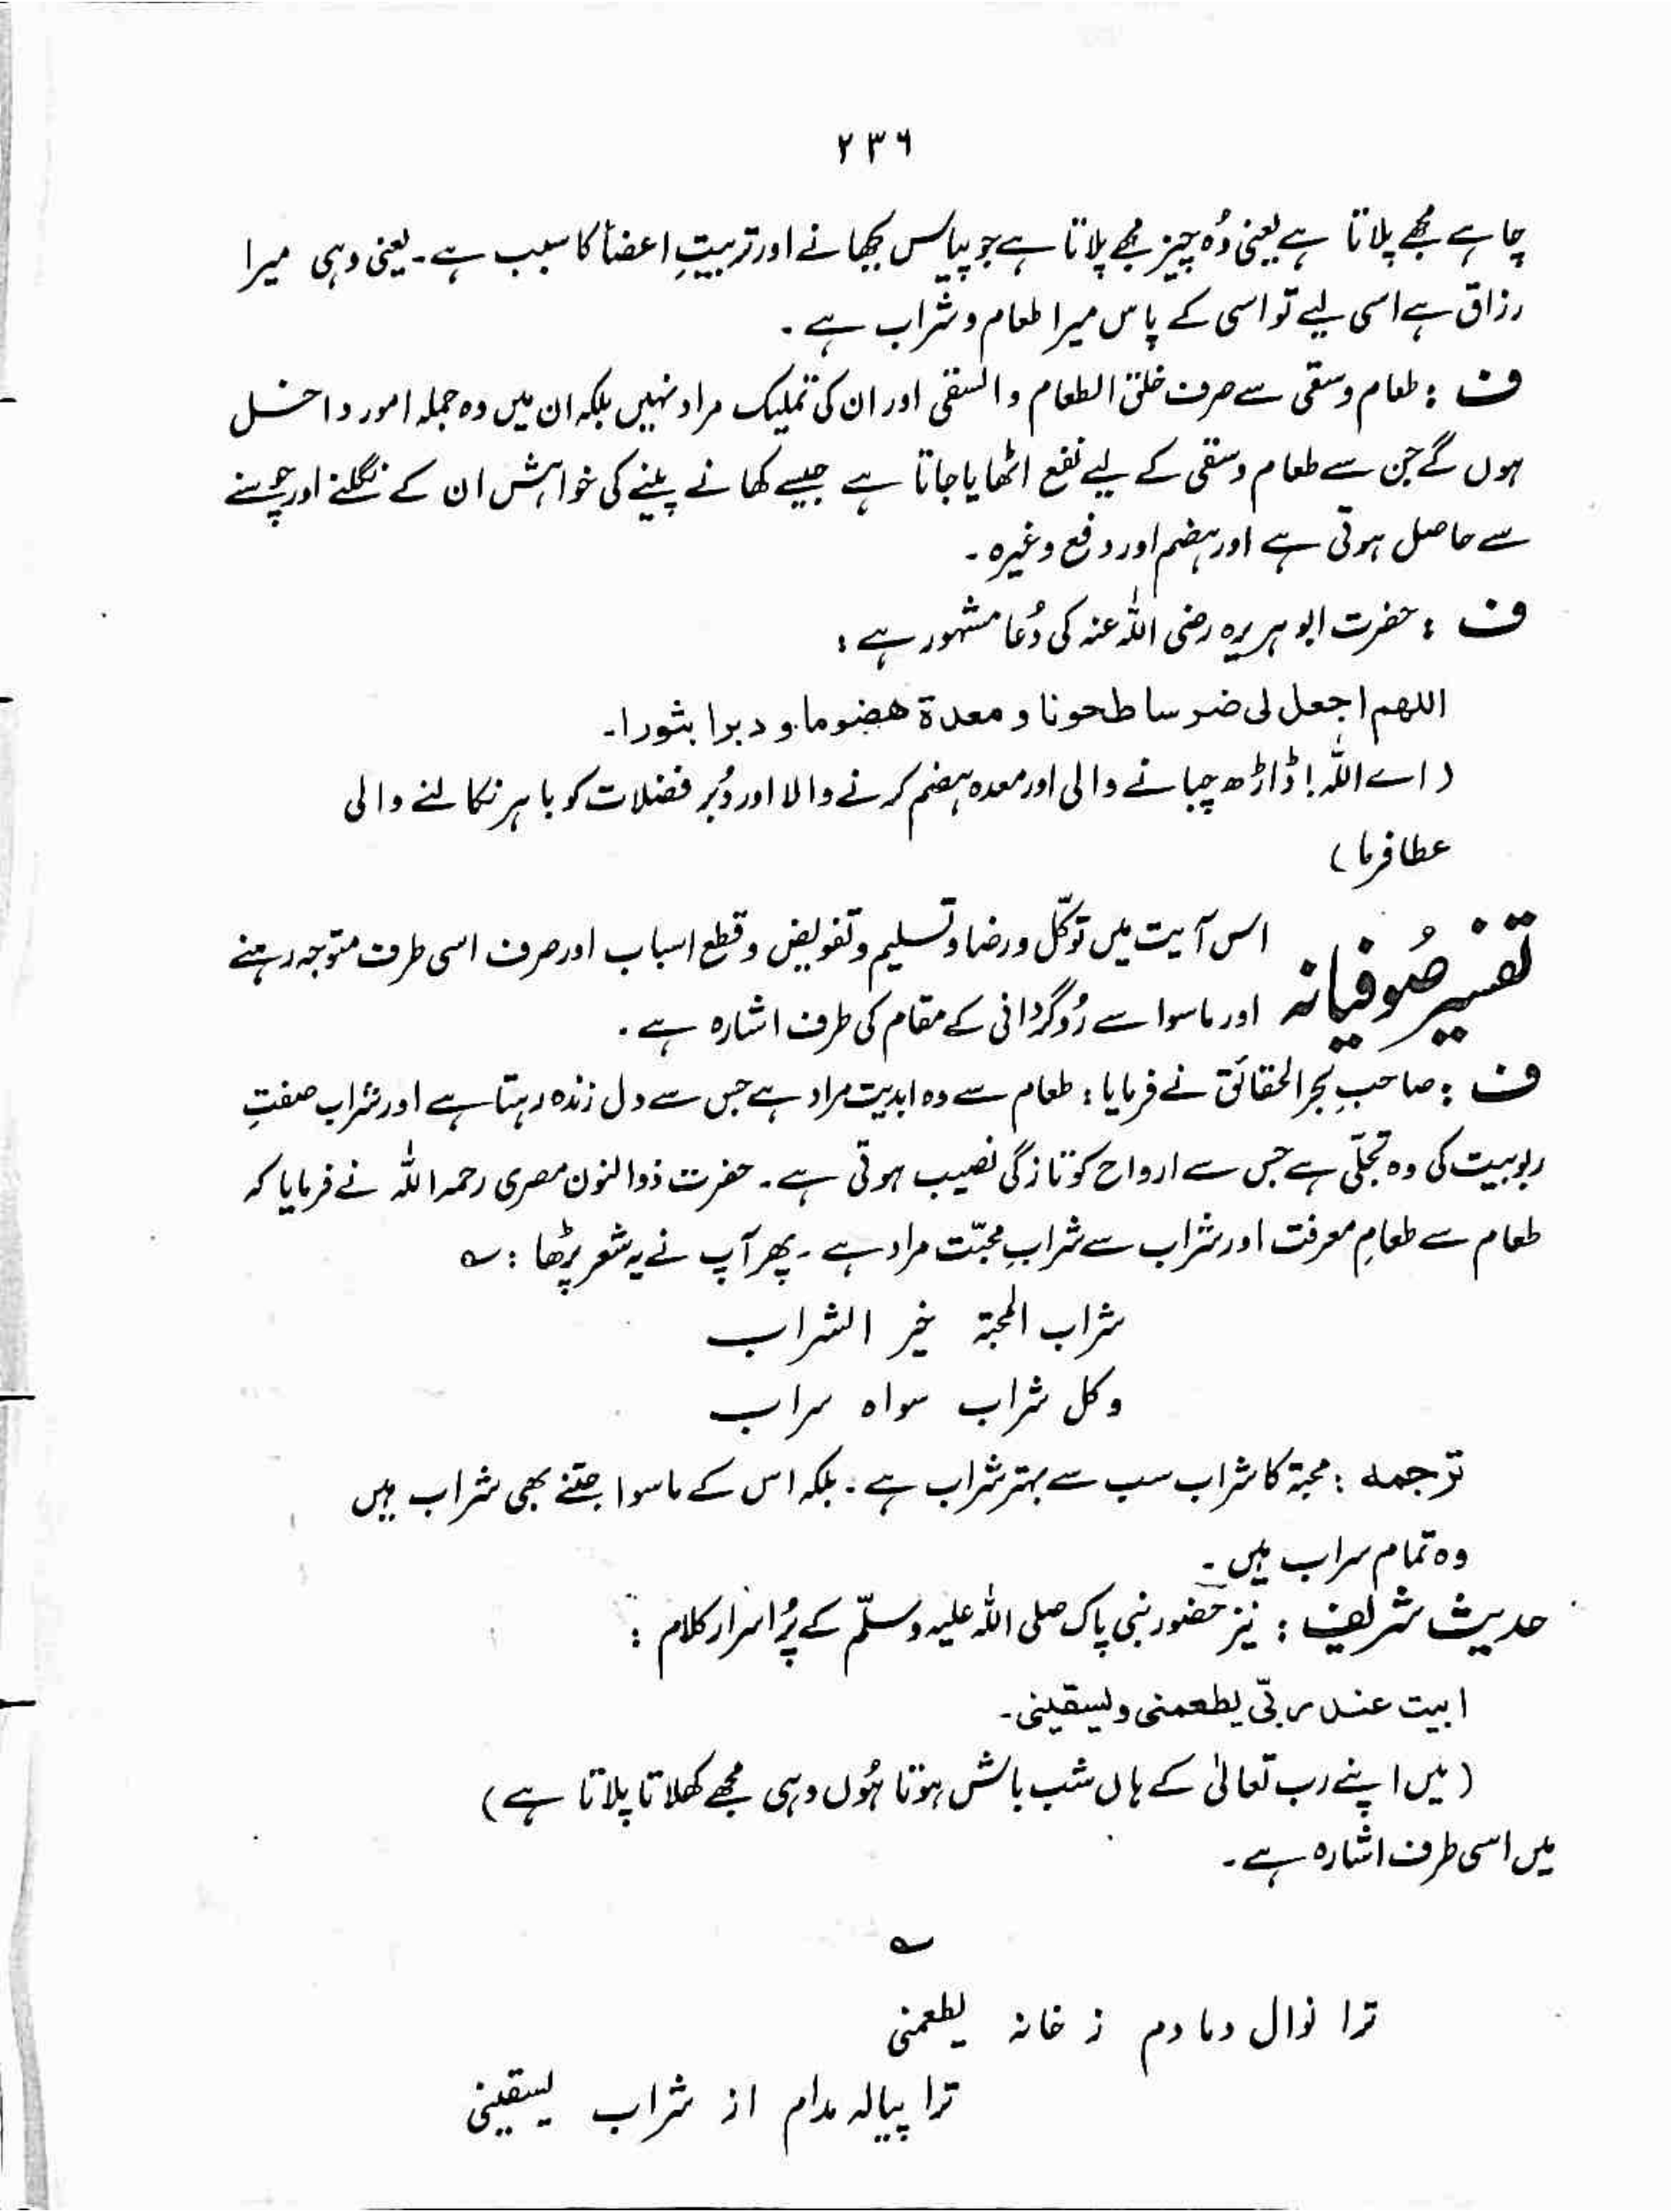 ۲۳۶
چاہے مجھے پلاتا ہے یعنی وُہ چیز مجھے پلاتا ہے جو پیاس بجھانے اور تربیتِ اعضأ کا سبب ہے۔ یعنی وہی میرا
رزاق ہے اسی لیے تو اسی کے پاس میرا طعام و شراب ہے۔
ف : طعام وسقی سے صرف خلق الطعام والسقی اور ان کی تملیک مراد نہیں بلکہ ان میں وہ جملہ امور داخل
ہوں گے جن سے طعام وسقی کے لیے نفع اٹھایا جاتا ہے جیسے کھانے پینے کی خواہش ان کے نگلنے اور چوسنے
سے حاصل ہوتی ہے اور ہضم اور دفع وغیرہ۔
ف : حضرت ابوہریرہ رضی اللہ عنہ کی دُعا مشہور ہے :
اللھم اجعل لی ضرسا طحونا و معدة ھضوما و دبرا بثورا۔
(اے اللہ! ڈاڑھ چبانے والی اور معدہ ہضم کرنے والا اور دُبر فضلات کو باہر نکالنے والی
عطا فرما)
تفسیر صُوفیانہ اس آیت میں توکّل و رضا و تسلیم و تفویض و قطع اسباب اور صرف اسی طرف متوجہ رہنے
اور ماسوا سے رُوگردانی کے مقام کی طرف اشارہ ہے۔
ف : صاحبِ بحر الحقائق نے فرمایا : طعام سے وہ ابدیت مراد ہے جس سے دل زندہ رہتا ہے اور شراب صفتِ
ربوبیت کی وہ تجلّی ہے جس سے ارواح کو تازگی نصیب ہوتی ہے۔ حضرت ذوالنون مصری رحمہ اللہ نے فرمایا کہ
طعام سے طعامِ معرفت اور شراب سے شرابِ محبّت مراد ہے۔ پھر آپ نے یہ شعر پڑھا : ؎
شراب المحبة خیر الشراب
وکل شراب سواه سراب
ترجمہ : محبۃ کا شراب سب سے بہتر شراب ہے۔ بلکہ اس کے ماسوا جتنے بھی شراب ہیں
وہ تمام سراب ہیں۔
حدیث شریف : نیز حضور نبی پاک صلی اللہ علیہ وسلّم کے پُر اسرار کلام :
ابیت عند ربّی یطعمنی ویسقینی۔
(میں اپنے رب تعالیٰ کے ہاں شب باش ہوتا ہُوں وہی مجھے کھلاتا پلاتا ہے)
میں اسی طرف اشارہ ہے۔
؎
ترا نوال دمادم ز خانہ یطعمنی
ترا پیالہ مدام از شراب یسقینی